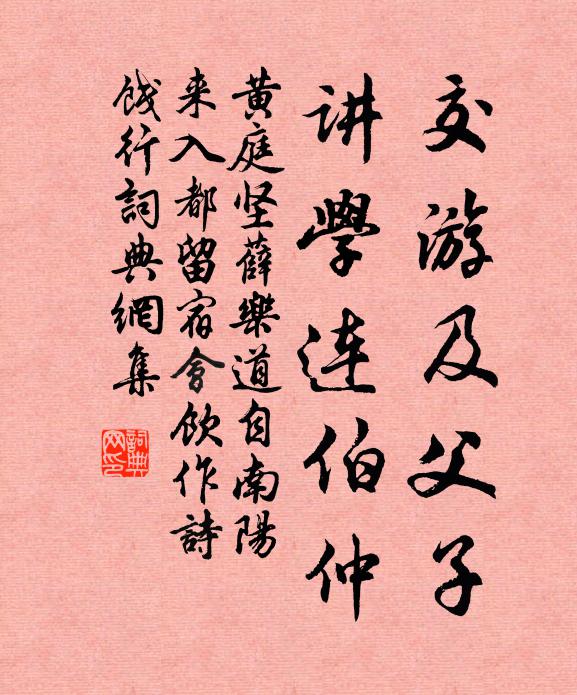 交游及父子
讲學连伯仲
黄庭坚薛樂道自南陽
来入都留宿會飲作詩
餞行詞典網集
詞典網印